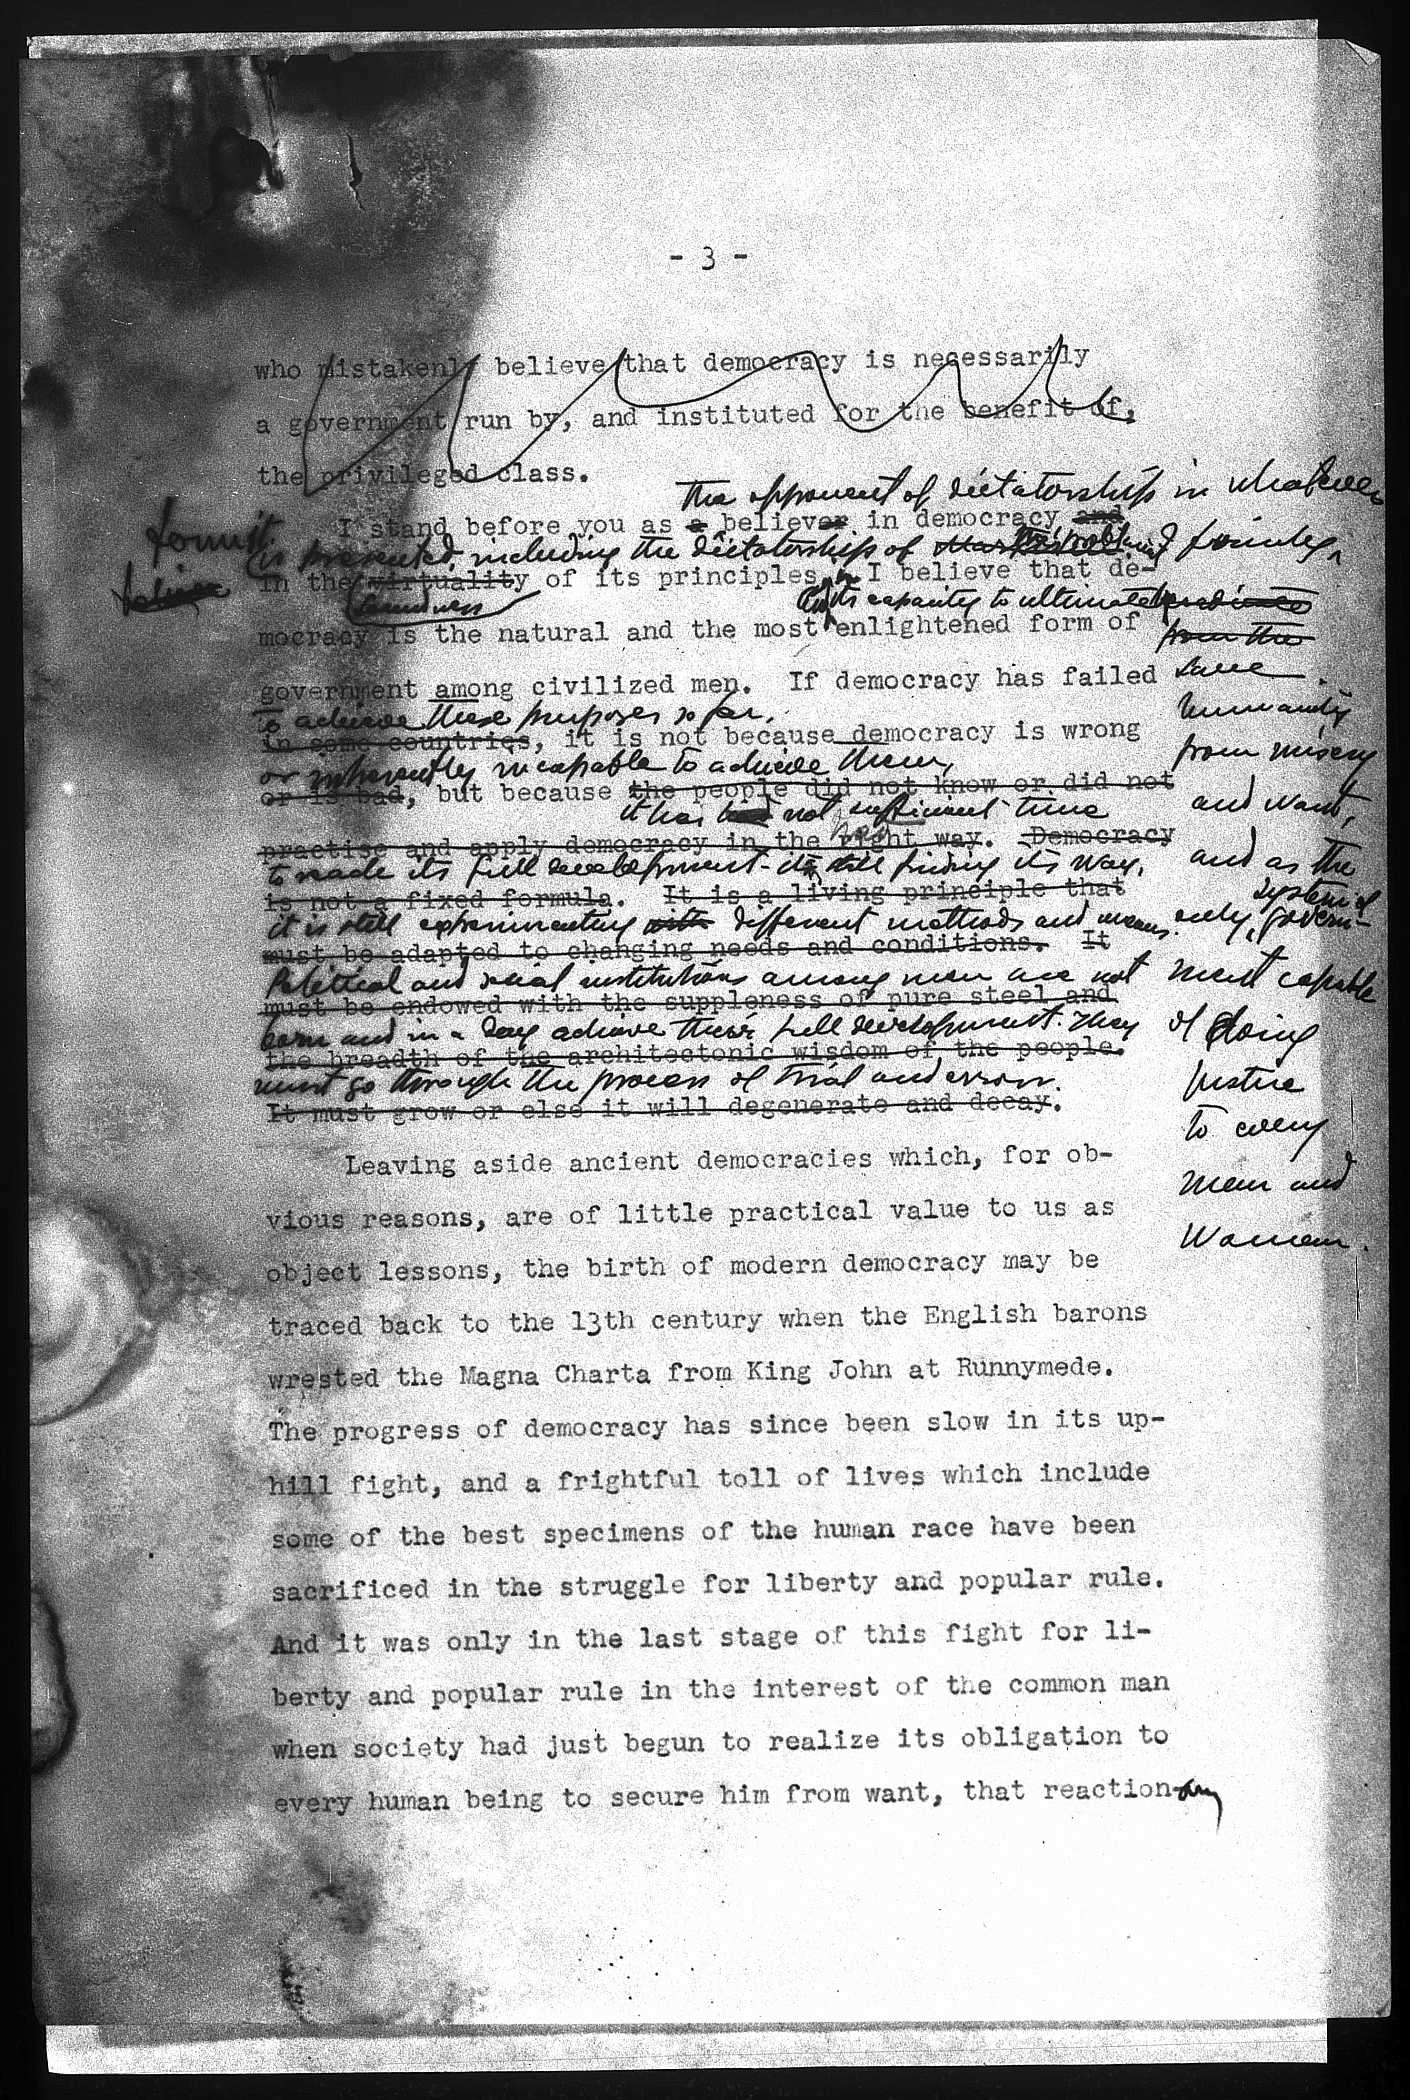 - 3 -
who mistakenly believe that democracy is necessarily
a government run by, and instituted for the benefit of,
the privileged class.
the opponent of dictatorships in whatever
I stand before you as a believer in democracy and
form it
is presented, including the dictatorship of
in the virtuality of its principles. I believe that de-
Soundness
its capacity to ultimately
from the
mocracy is the natural and the most enlightened form of
government among civilized men. If democracy has failed
save
humanity
from misery
and want,
and as the
only system of govern-
ment capable
of doing
justice
to every
man and
woman.
to achieve these purposes so far,
in some countries, it is not because democracy is wrong
or inherently incapable to achieve them,
or is bad, but because the people did not know or did not
it has had not sufficient time
practise and apply democracy in the right way. Democracy
to reach its full development - it is still finding its way,
is not a fixed formula. It is a living principle that
it is still experimenting with different methods and means.
must be adapted to changing needs and conditions. It
Political and social institutions among men are not
must be endowed with the suppleness of pure steel and
born and in a day achieve their full development. They
the breadth of the architectonic wisdom of the people.
must go through the process of trial and error.
It must grow or else it will degenerate and decay.
Leaving aside ancient democracies which, for ob-
vious reasons, are of little practical value to us as
object lessons, the birth of modern democracy may be
traced back to the 13th century when the English barons
wrested the Magna Charta from King John at Runnymede.
The progress of democracy has since been slow in its up-
hill fight, and a frightful toll of lives which include
some of the best specimens of the human race have been
sacrificed in the struggle for liberty and popular rule.
And it was only in the last stage of this fight for li-
berty and popular rule in the interest of the common man
when society had just begun to realize its obligation to
every human being to secure him from want, that reactionary